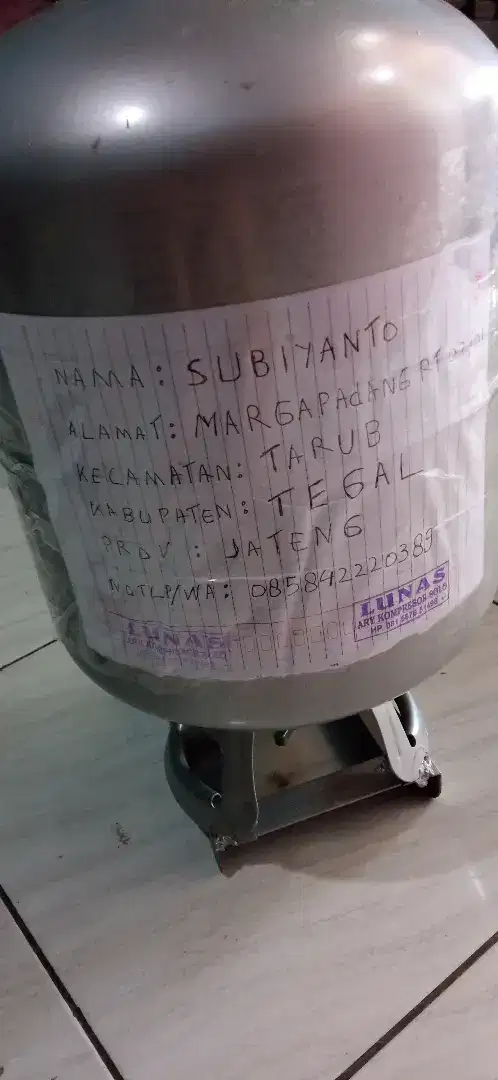 NAMA : SUBIYANTO
ALAMAT : MARGAPADANG RT
KECAMATAN : TARUB
KABUPATEN : TEGAL
PROV : JATENG
NOTLP/WA : 085842220389
LUNAS
ARY KOMPRESOR SOLO
LUNAS